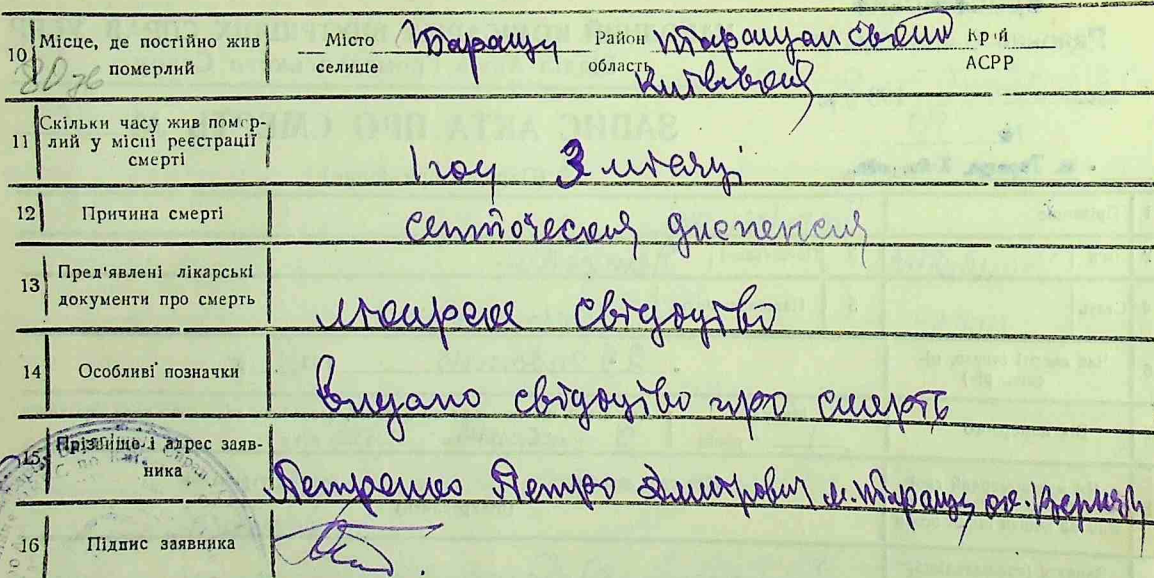 10 Місце, де постійно жив померлий Місто селище Таращу Район область Таращанський Київської Край АСРР
80 ж
11 Скільки часу жив помер-
лий у місці реєстрації
смерті
1 год 3 місяці
12 Причина смерті
септическая диспепсия
13 Пред'явлені лікарські
документи про смерть
лікарське свідоцтво
14 Особливі позначки
Видано свідоцтво про смерть
15 Прізвище і адрес заяв-
ника
Петренко Петро Дмитрович м. Тараща
16 Підпис заявника